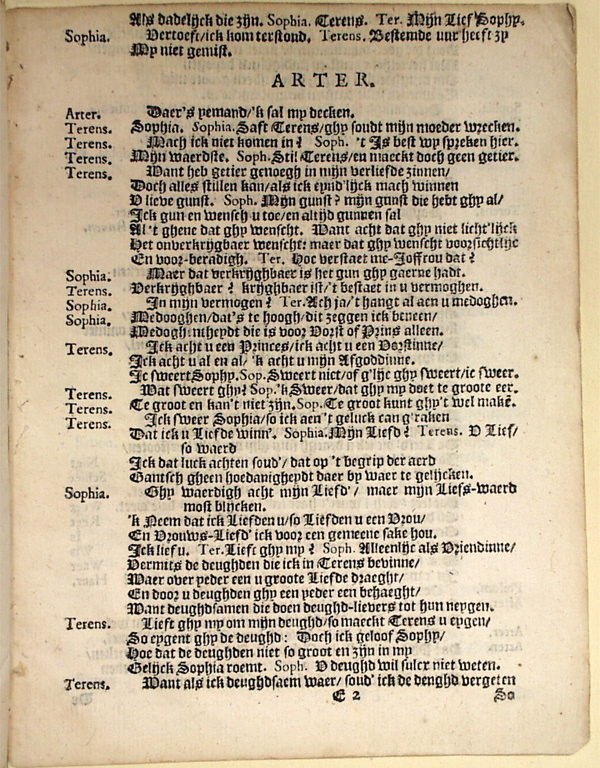 Als dadelijck die zijn. Sophia. Terens. Ter. Mijn Lief Sophy.
Sophia. Vertoeft/ick kom terstond. Terens. Bestemde uur heeft zy
My niet gemist.
ARTER.
Arter. Daer's yemand/'k sal my decken.
Terens. Sophia. Sophia. Saft Terens/ghy soudt mijn moeder wrecken.
Terens. Mach ick niet komen in? Soph. 't Is best wy spreken hier.
Terens. Mijn waerdste. Soph. Stil Terens/en maeckt doch geen getier.
Terens. Want heb getier genoegh in mijn verliefde zinnen/
Doch alles stillen kan/als ick eynd'lijck mach winnen
V lieve gunst. Soph. Mijn gunst? mijn gunst die hebt ghy al/
Ick gun en wensch u toe/en altijd gunnen sal
Al 't ghene dat ghy wenscht. Want acht dat ghy niet licht'lijck
Het onverkrijgbaer wenscht: maer dat ghy wenscht voorsichtlijc
En voor-beradigh. Ter. Hoe verstaet me-Joffrou dat?
Sophia. Maer dat verkrijghbaer is het gun ghy gaerne hadt.
Terens. Verkrijghbaer? krijghbaer ist/'t bestaet in u vermoghen.
Sophia. In mijn vermogen? Ter. Ach ja/'t hangt al aen u medoghen.
Sophia. Medooghen/dat's te hoogh/dit zeggen ick beneen/
Medoghentheydt die is voor Vorst of Prins alleen.
Terens. Ick acht u een Princes/ick acht u een Vorstinne/
Ick acht u al en al/ 'k acht u mijn Afgoddinne.
Ic sweert Sophy. Sop. Sweert niet/of g'lijc ghy sweert/ic sweer.
Terens. Wat sweert ghy? Sop. 'k Sweer/dat ghy my doet te groote eer.
Terens. Te groot en kan't niet zijn. Sop. Te groot kunt ghy't wel makē.
Terens. Ick sweer Sophia/so ick aen 't geluck can g'raken
Dat ick u Liefde winn'. Sophia. Mijn Liefd? Terens. V Lief/
so waerd
Ick dat luck achten soud'/dat op 't begrip der aerd
Gantsch gheen hoedanigheydt daer by waer te gelijcken.
Sophia. Ghy waerdigh acht mijn Liefd'/ maer mijn Liefs-waerd
most blijcken.
'k Neem dat ick Liefden u/so Liefden u een Vrou/
En Vrouws-Liefd' ick voor een gemeene sake hou.
Ick lief u. Ter. Lieft ghy my? Soph. Alleenlijc als Vriendinne/
Vermits de deughden die ick in Terens bevinne/
Waer over yeder een u groote Liefde draeght/
En door u deughden ghy een yeder een behaeght/
Want deughdsamen die doen deughd-lievers tot hun neygen.
Terens. Lieft ghy my om mijn deughd/so maeckt Terens u eygen/
So eygent ghy de deughd: Doch ick geloof Sophy/
Hoe dat de deughden niet so groot en zijn in my
Gelijck Sophia roemt. Soph. V deughd wil sulcx niet weten.
Terens. Want als ick deughdsaem waer/ soud' ick de deughd vergeten
E 2 So